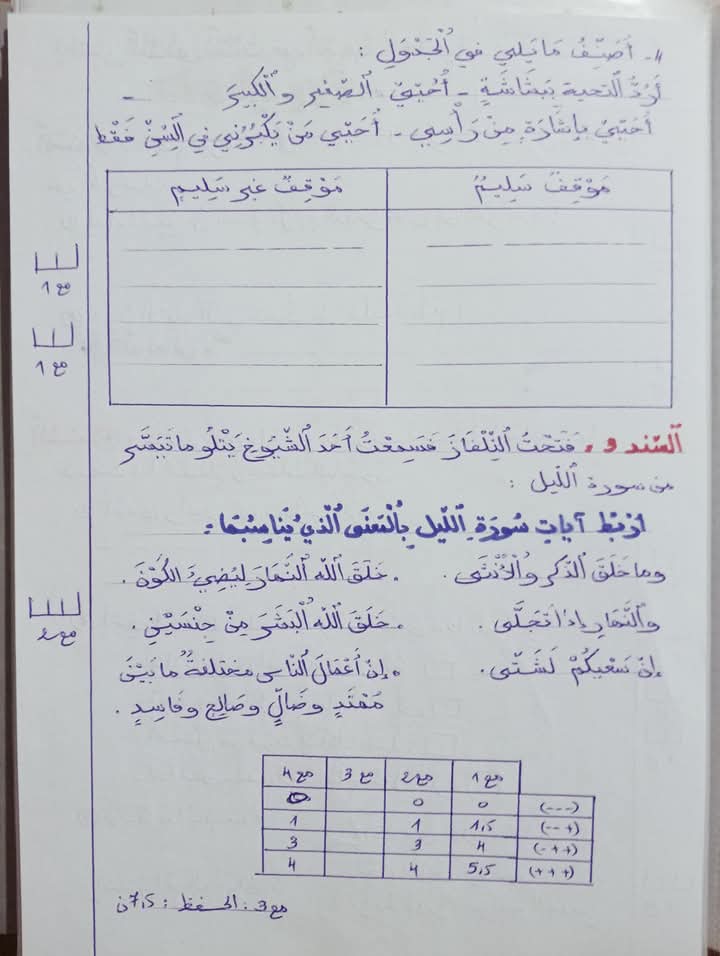 4- أُصَنِّفُ مَا يَلِي فِي الْجَدْوَلِ :
أَرُدُّ التحية بِبَشَاشَةٍ - أُحَيِّي الصَّغِير وَالْكَبِيرَ -
أُحَيِّي بِإِشَارَةٍ مِنْ رَأْسِي - أُحَيِّي مَنْ يَكْبُرُنِي فِي السِّنِّ فَقَط
مَوْقِفٌ سَلِيمٌ
مَوْقِفٌ غير سَلِيمٍ
مع 1
مع 1
السّند و : فَتَحْتُ التِّلْفَازَ فَسَمِعْتُ أَحَدَ الشُّيُوخِ يَتْلُو مَا تَيَسَّر
من سورة اللّيل :
اربط آيات سُورَةِ اللَّيلِ بِالْمَعْنَى الَّذِي يُنَاسِبُهَا :
وما خَلَقَ الذَّكَر وَالْأُنْثَى . . خَلَقَ اللّه النَّهَارَ لِيُضِيءَ الكَوْنَ .
وَالنَّهَارِ إِذَا تَجَلَّى . . خَلَقَ اللّهُ الْبَشَرَ مِنْ جِنْسَيْنِ .
إِنَّ سَعْيَكُمْ لَشَتَّى . . إِنَّ أَعْمَالَ النَّاسِ مختلفةٌ ما بَيْنَ
مع 2
مُهْتَدٍ وضَالٍّ وصَالِحٍ وفَاسِدٍ .
مع 1 مع 2 مع 3 مع 4
(---) 0 0 0
(--+) 1,5 1 1
(-++) 4 3 3
(+++) 5,5 4 4
مع 3 : الحفظ : 7,5ن